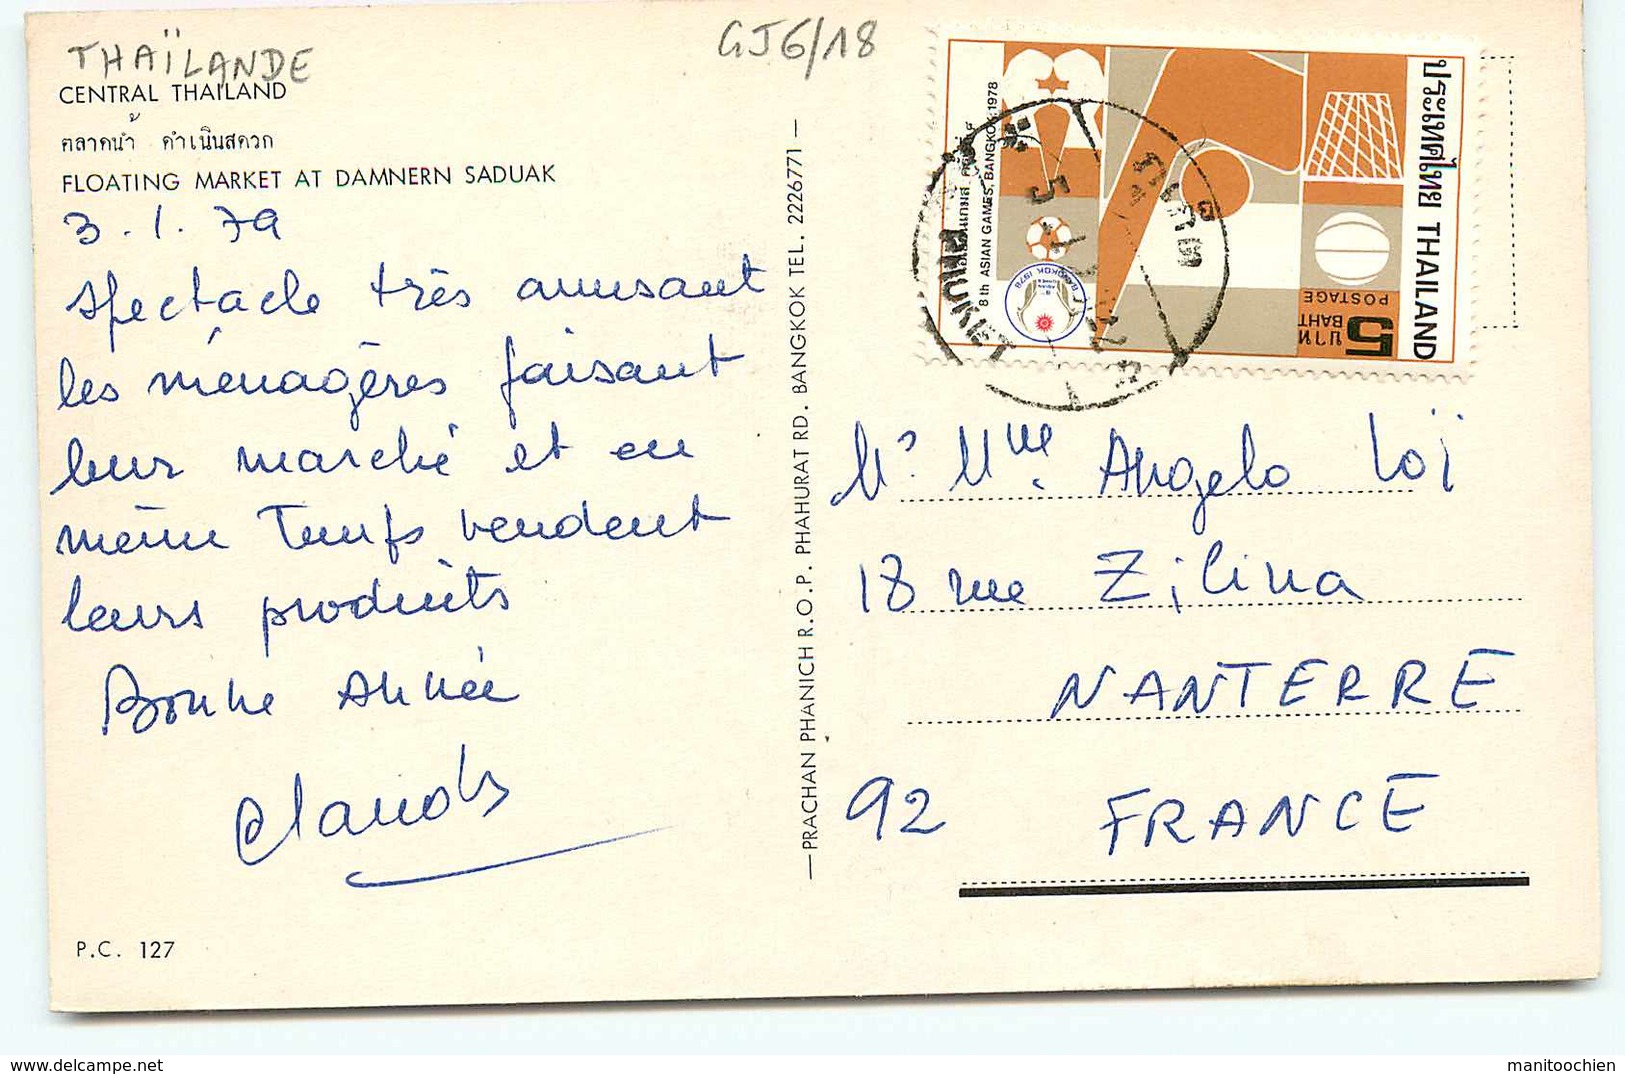 THAÏLANDE
GJ6/18
CENTRAL THAILAND
ตลาดน้ำ ดำเนินสดวก
FLOATING MARKET AT DAMNERN SADUAK
3.1.79
Spectacle très amusant
les ménagères faisant
leur marché et en
même Temps vendent
leurs produits
Bonne Année
Claude
P.C. 127
—PRACHAN PHANICH R.O.P. PHAHURAT RD. BANGKOK TEL. 2226771—
ประเทศไทย THAILAND
5
บาท
BAHT
POSTAGE
8th ASIAN GAMES, BANGKOK 1978
BANGKOK 1978
PHUKET
ภูเก็ต
Mr. Mme. Angelo Loï
18 rue Zilina
NANTERRE
92 FRANCE
manitoochien